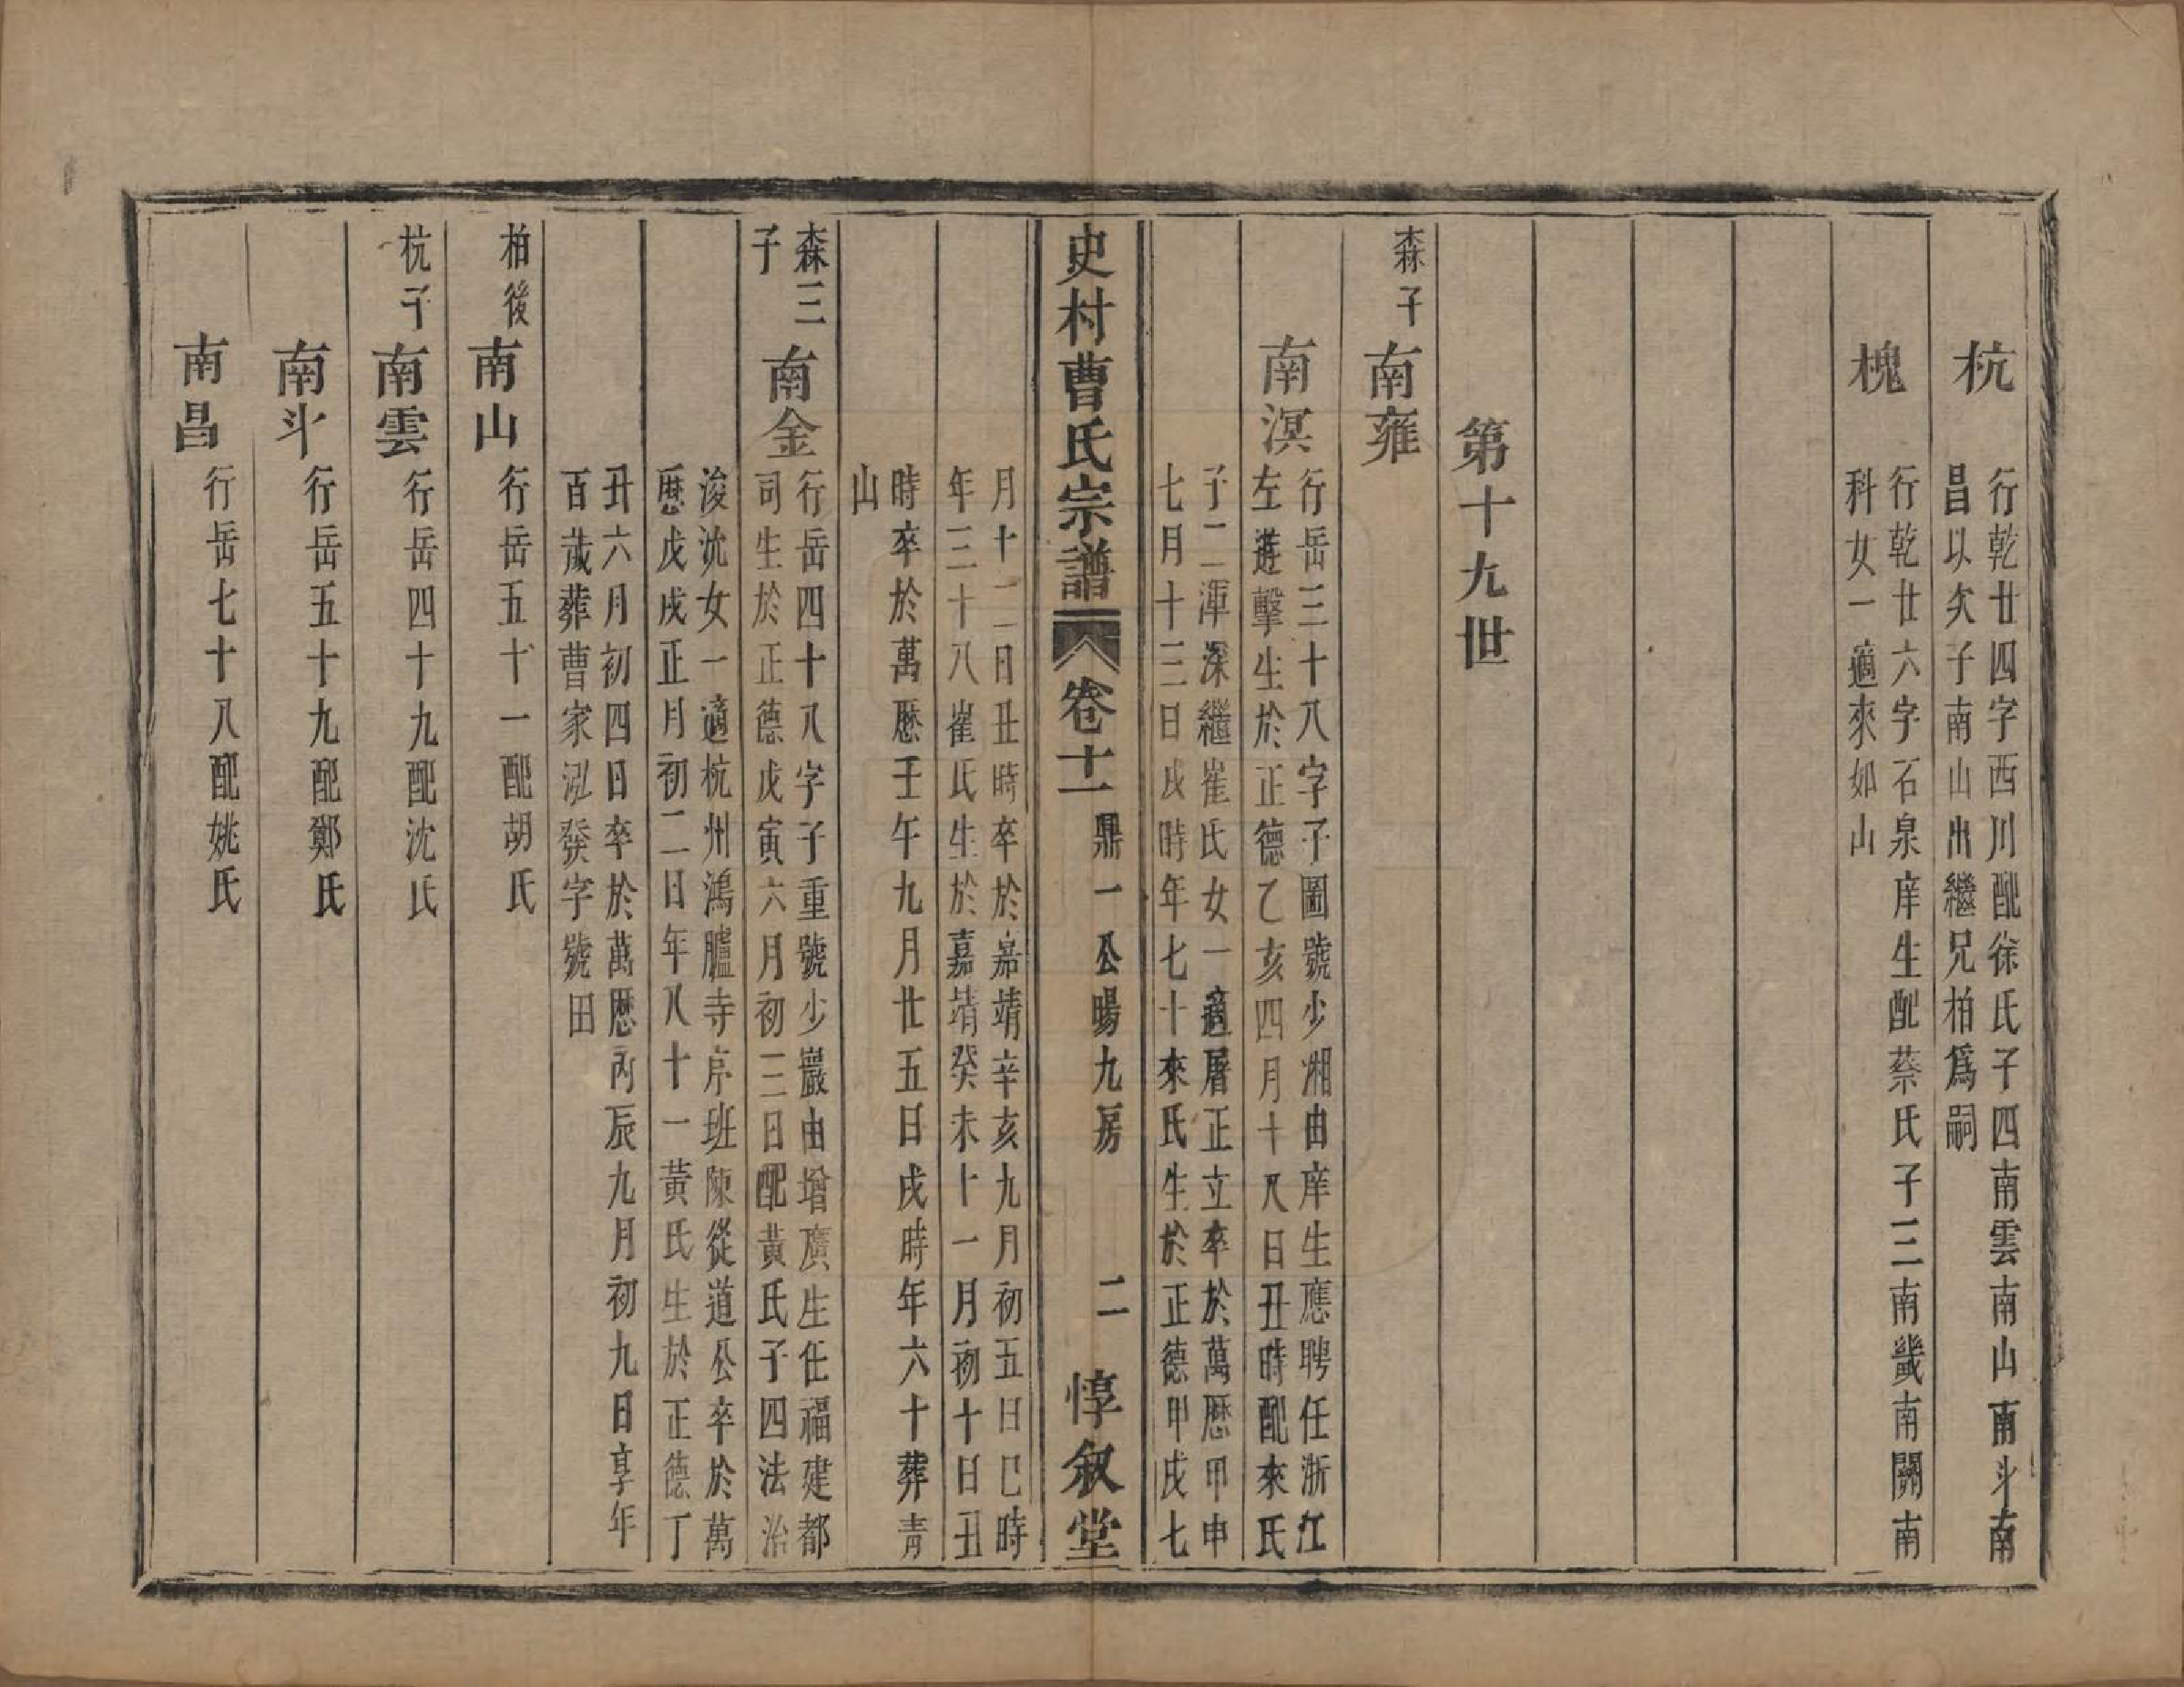 杭
行乾廿四字西川配徐氏子四南雲南山南斗南
昌以矢子南山出繼兄柏爲嗣
槐
行乾廿六字石泉庠生配蔡氏子三南畿南關南
科女一適來如山
第十九世
森子
南雍
南溟
行岳三十八字子圖號少湘由庠生應聘任浙江
左遊擊生於正德乙亥四月十八日丑時配來氏
子二渾深繼崔氏女一適屠正立卒於萬歷甲申
七月十三日戌時年七十來氏生於正德甲戌七
史村曹氏宗譜
卷十一
鼎一公暘九房
二
惇叙堂
月十二日丑時卒於嘉靖辛亥九月初五日巳時
年三十八崔氏生於嘉靖癸未十一月初十日丑
時卒於萬歷壬午九月廿五日戌時年六十葬青
山
森三
子
南金
行岳四十八字子重號少巖由增廣生任福建都
司生於正德戊寅六月初三日配黃氏子四法治
浚沈女一適杭州鴻臚寺序班陳從道公卒於萬
歷戊戌正月初二日年八十一黃氏生於正德丁
丑六月初四日卒於萬歷丙辰九月初九日享年
百歲葬曹家泓發字號田
柏後
南山
行岳五十一配胡氏
杭子
南雲
行岳四十九配沈氏
南斗
行岳五十九配鄭氏
南昌
行岳七十八配姚氏